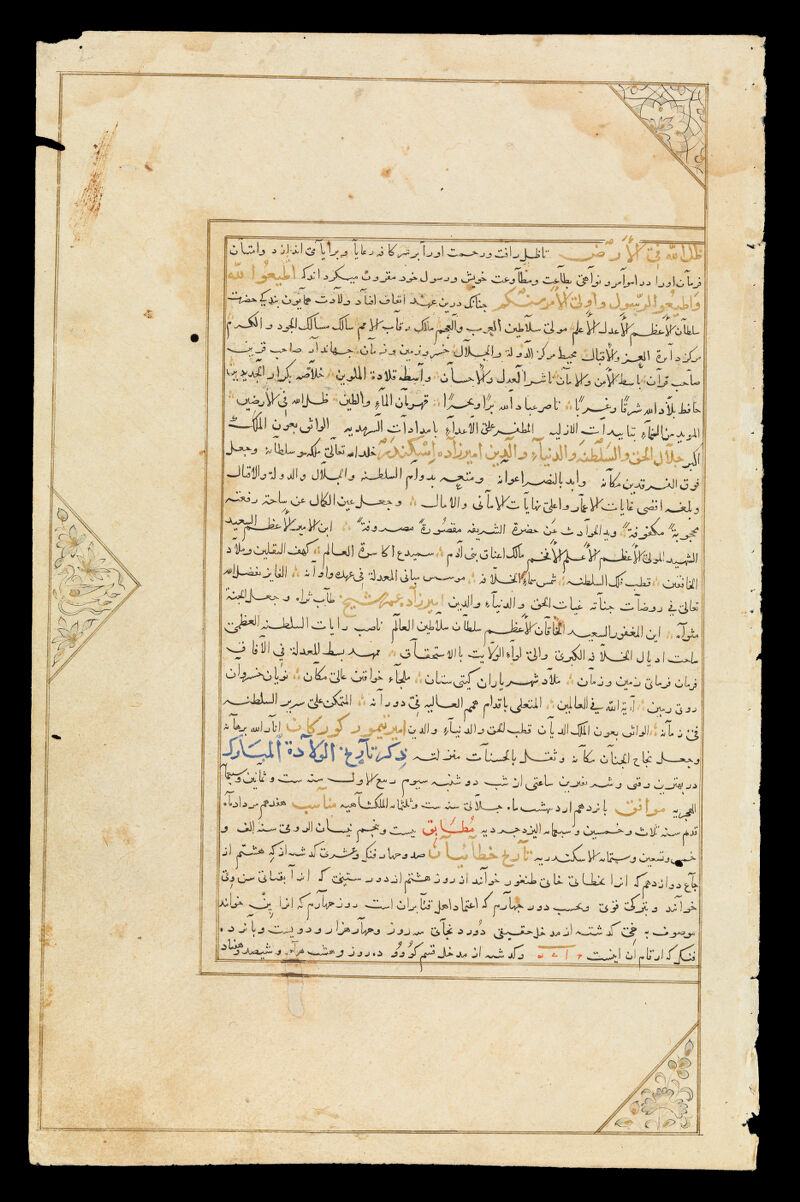 ظل الله في الأرض تا ظل رافت و رحمت او را بر سر کافه رعایا و برایا می اندازد و امتثال
فرمان او را در اوامر و نواهی بطاعت و مطاوعت خویش و رسول خود مقرون میگرداند که اطیعوا الله
واطیعوا الرسول واولي الأمر منكم چنانک درین عهد اتفاق افتاد ولادت همایون بندگی حضرت
سلطان الأعظم الأعدل الأعلم مولى سلاطين العرب والعجم مالك رقاب الامم سالك مسالك الجود والكرم
مركز دايرة العز والاقبال محيط مركز الدولة والجلال خسرو زمین و زمان جهاندار صاحب قرین
صاحب قران باسط الأمن والامان ناشر العدل والاحسان واسطه قلادة الملوين خلاصه
حافظ بلاد الله شرقا وغربا ناصر عباد الله برا وبحرا قهرمان الماء والطين ظل الله في الأرضين
المويد من السماء بتاييدات الازليه المظفر على الأعداء بامدادات السرمديه الواثق بعون الملك
اكبر جلال الحق والسلطنة والدنياء والدين اميرزاده اسكندر خلد الله تعالى ملكه وسلطانه وجعل
فوق الفرقدين مكانه وايد بالنصر اعوانه ومتعه بدوام السلطنه والجلال والدولة والاقبال
وبلغه اقصى غايات الاعمار واعلى نهايات الاماني والامال وجعل عين الكمال عن ساحة رفعته
محجوبة مكفوفة ويد الحوادث عن حضرة الشريفه مقصورة مصروفة ابن الامير الأعظم السعيد
الشهيد المولى الأعظم الأعلم الأفخم مالك اعناق بني آدم سميدع اكاسرة العالم كهف الثقلين وملاذ
الخافقين قطب فلك السلطنه شمس سماء الخلافة موسس مباني المعدلة في عهده واوانه الفايز بفضل الله
تعالى في روضات جنانه غياث الحق والدنياء والدين اميرزاده عمر شيخ طاب ثراه وجعل الجنة
مثواه ابن المغفور السعيد الخاقان الأعظم سلطان سلاطين العالم ناصب رايات السلطنه العظمى
ساحب اذيال الخلافة الكبرى والي لواء الولايت بالاستحقاق ممهد بسط المعدلة في الآفاق
فرمان فرمای زمین و زمان ملاذ شهریاران گیتی ستان ملجاء خواقین عالی مکان نویان خسروان
روی زمین آية الله في العالمين المتعلي باقدام همم العاليه في دورانه المتكن على سرير السلطنه
في زمانه الواثق بعون الملك الديان قطب الحق والدنياء والدين امير تيمور كوركان انار الله برهانه
وجعل جنان مكانه وثقل بالحسنات ذكر تاریخ الولادة المبارك
در بهترین وقتی و شریفترین ساعتی از شب دوشنبه سیوم ربیع الاول سنه ست وثمانين وسبعمایه
الهجریه موافق پانزدهم اردیبهشت ماه جلالی سنه ست وثلثمایه الملکشاهیه مناسب هفدهم مرداد ماه
قدیم سنه ثلاث وخمسين وسبعمایه الیزدجردیه مطابق بیست و پنجم نیسان الرومی سنه الف و
خمس وتسعین وستمایه الاسکندریه تاریخ خطائیان صد و چهار فنک و عشری گذشته از که هشتم از
جاغ دوازدهم که انرا بخطائی خانی طنغور خوانند از روز هشتم از دور ستینی که انرا بقتائی سن وی
خوانند و بترکی قوی و بحسب دور چهارم که اعتماد اهل قتا بران است روز چهارم که انرا پن خوانند
موصوف به فی گذشته از مدخل حقیقی دور دنجانی سه روز و چهار هزار و دویست و یازده
فنک که ارقام آن اینست و گذشته از مدخل قسم کوکو ده روز و هشت هزار و ششصد و هفتاد